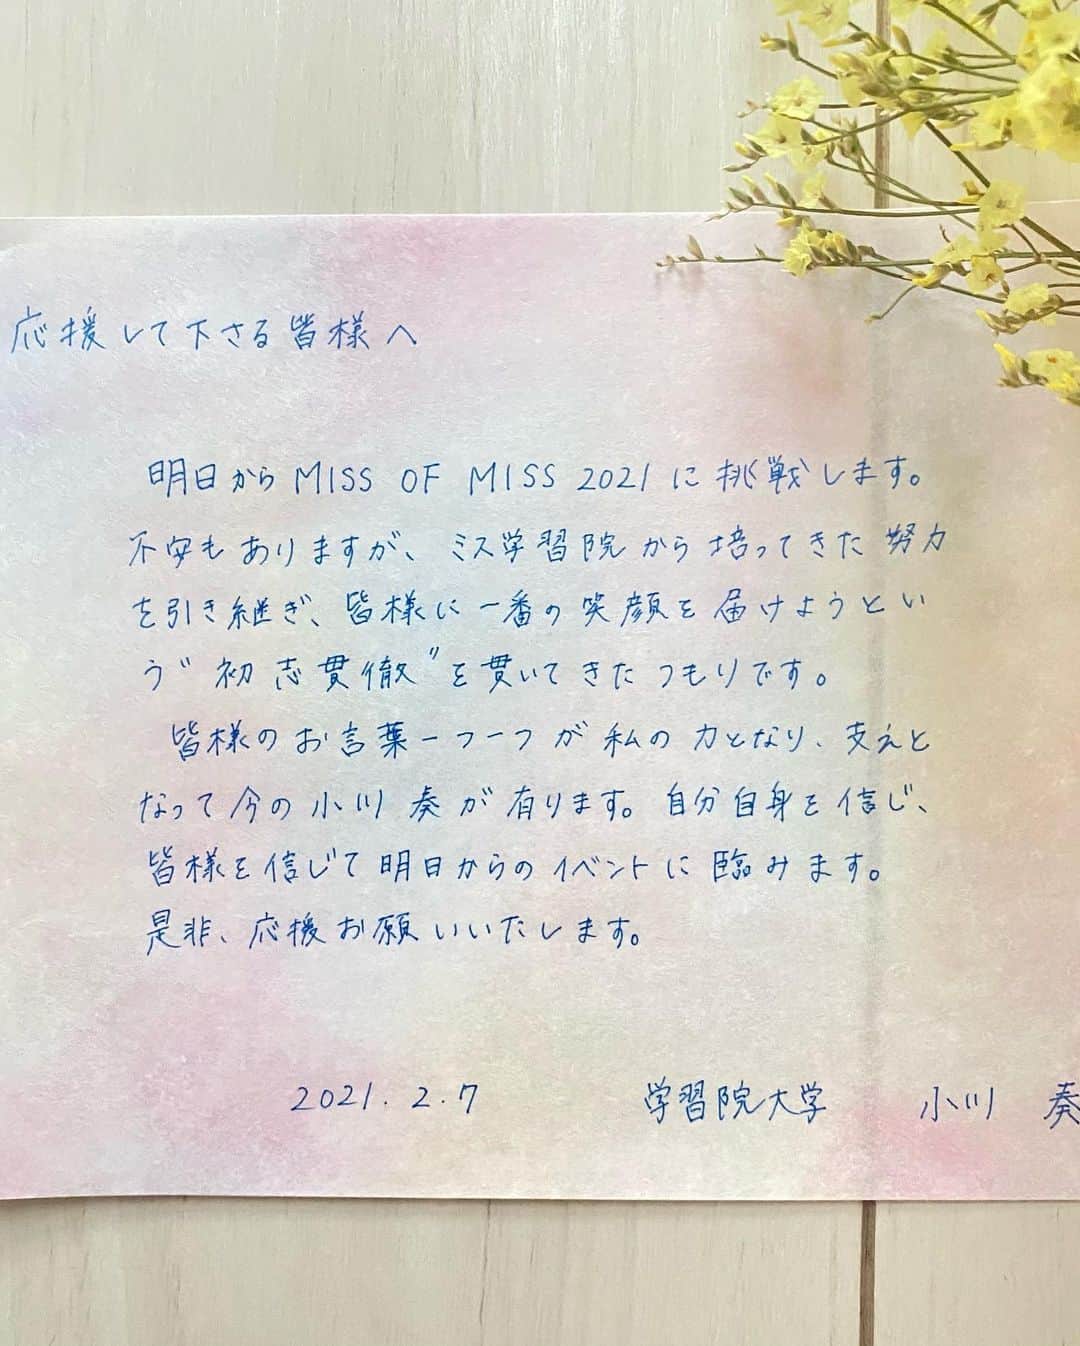 応援して下さる皆様へ
明日から MISS OF MISS 2021 に挑戦します。
不安もありますが、ミス学習院から培ってきた努力
を引き継ぎ、皆様に一番の笑顔を届けようとい
う"初志貫徹"を貫いてきたつもりです。
皆様のお言葉一つ一つが私の力となり、支えと
なって今の小川 奏が有ります。自分自身を信じ、
皆様を信じて明日からのイベントに臨みます。
是非、応援お願いいたします。
2021.2.7 学習院大学 小川 奏